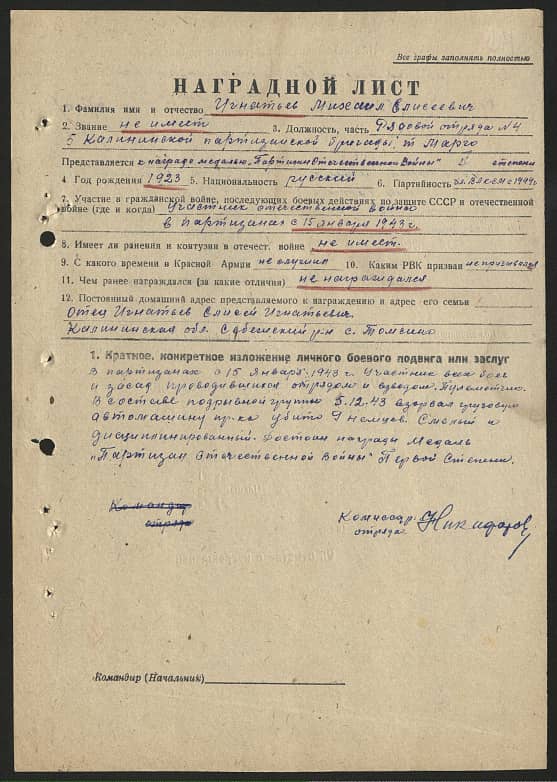 Все графы заполнять полностью
НАГРАДНОЙ ЛИСТ
1. Фамилия имя и отчество Игнатьев Михаил Елисеевич
2. Звание не имеет 3. Должность, часть Рядовой отряда №4
5 Калининской партизанской бригады, т Марго
Представляется к награде медалью „Партизан Отечественной Войны" степени
4 Год рождения 1923 5. Национальность русский 6. Партийность чл. ВЛКСМ с 1944г
7. Участие в гражданской войне, последующих боевых действиях по защите СССР и отечественной
войне (где и когда) Участник отечественной войны
в партизанах с 15 января 1943 г.
8. Имеет ли ранения и контузии в отечест. войне не имеет.
9. С какого времени в Красной Армии не служил 10. Каким РВК призван не призывался
11. Чем ранее награждался (за какие отличия) не награждался
12. Постоянный домашний адрес представляемого к награждению и адрес его семьи
Отец Игнатьев Елисей Игнатьевич.
Калининская обл. Себежский р-н с. Томсино
1. Краткое, конкретное изложение личного боевого подвига или заслуг
В партизанах с 15 января 1943 г. Участник всех боев
и засад проводившихся отрядом и взводом. Пулеметчик.
В составе подрывной группы 5.12.43 взорвал грузовую
автомашину пр-ка убито 9 немцев. Смелый и
дисциплинированный. Достоин награды Медаль
„Партизан Отечественной Войны" Первой Степени.
Командир
отряда
Комиссар
отряда
Никифоров
Командир (Начальник)